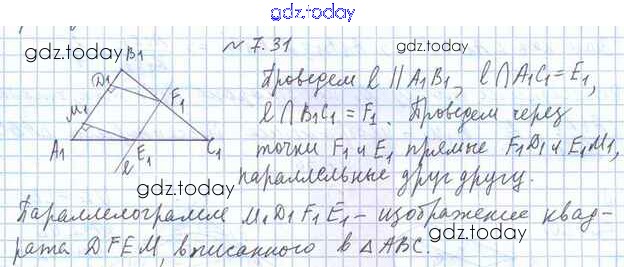 gdz.today
№ 7.31
gdz.today
gdz.today
B₁
D₁
F₁
M₁
A₁
E₁
C₁
l
Проведем l || A₁B₁, l ∩ A₁C₁ = E₁,
l ∩ B₁C₁ = F₁. Проведем через
точки F₁ и E₁ прямые F₁D₁ и E₁M₁,
параллельные друг другу.
gdz.today
Параллелограмм M₁D₁F₁E₁ – изображение квад-
рата DFEM, вписанного в △ABC.
gdz.today
gdz.today